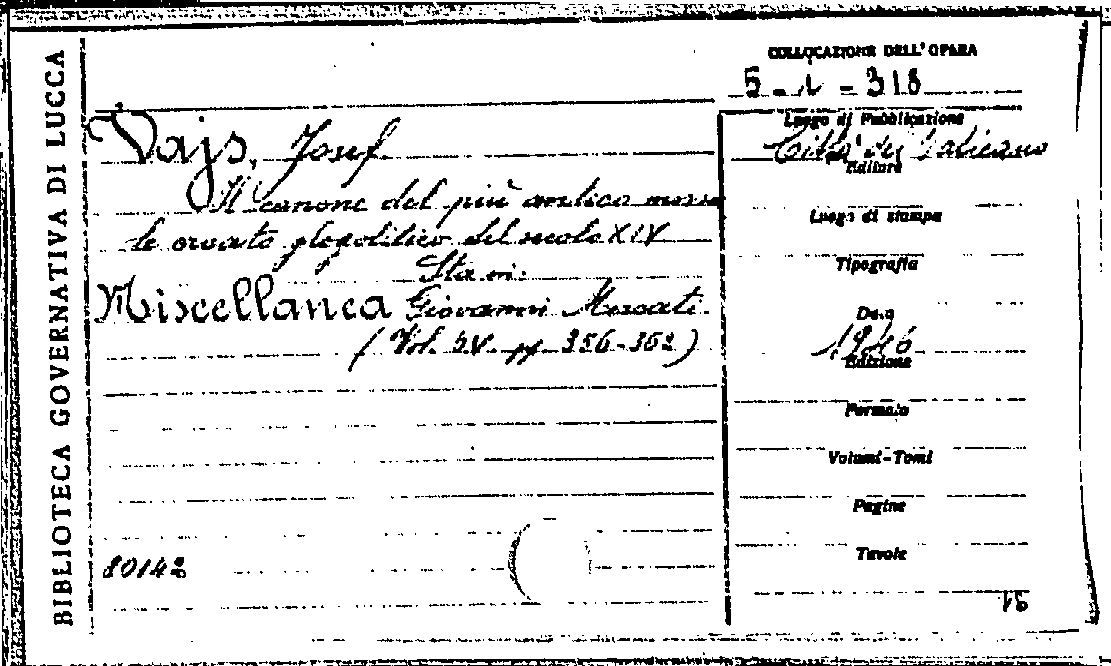 BIBLIOTECA GOVERNATIVA DI LUCCA
COLLOCAZIONE DELL'OPERA
5 - 1 - 318
Vajs, Josef.
Il canone del più antico messa
le croato glagolitico del secolo XIV
Sta in:
Miscellanea Giovanni Mercati.
(Vol. V. pp. 356-362)
80142
Luogo di Pubblicazione
Città del Vaticano
Editore
Luogo di stampa
Tipografia
Data
1946
Edizione
Formato
Volumi-Tomi
Pagine
Tavole